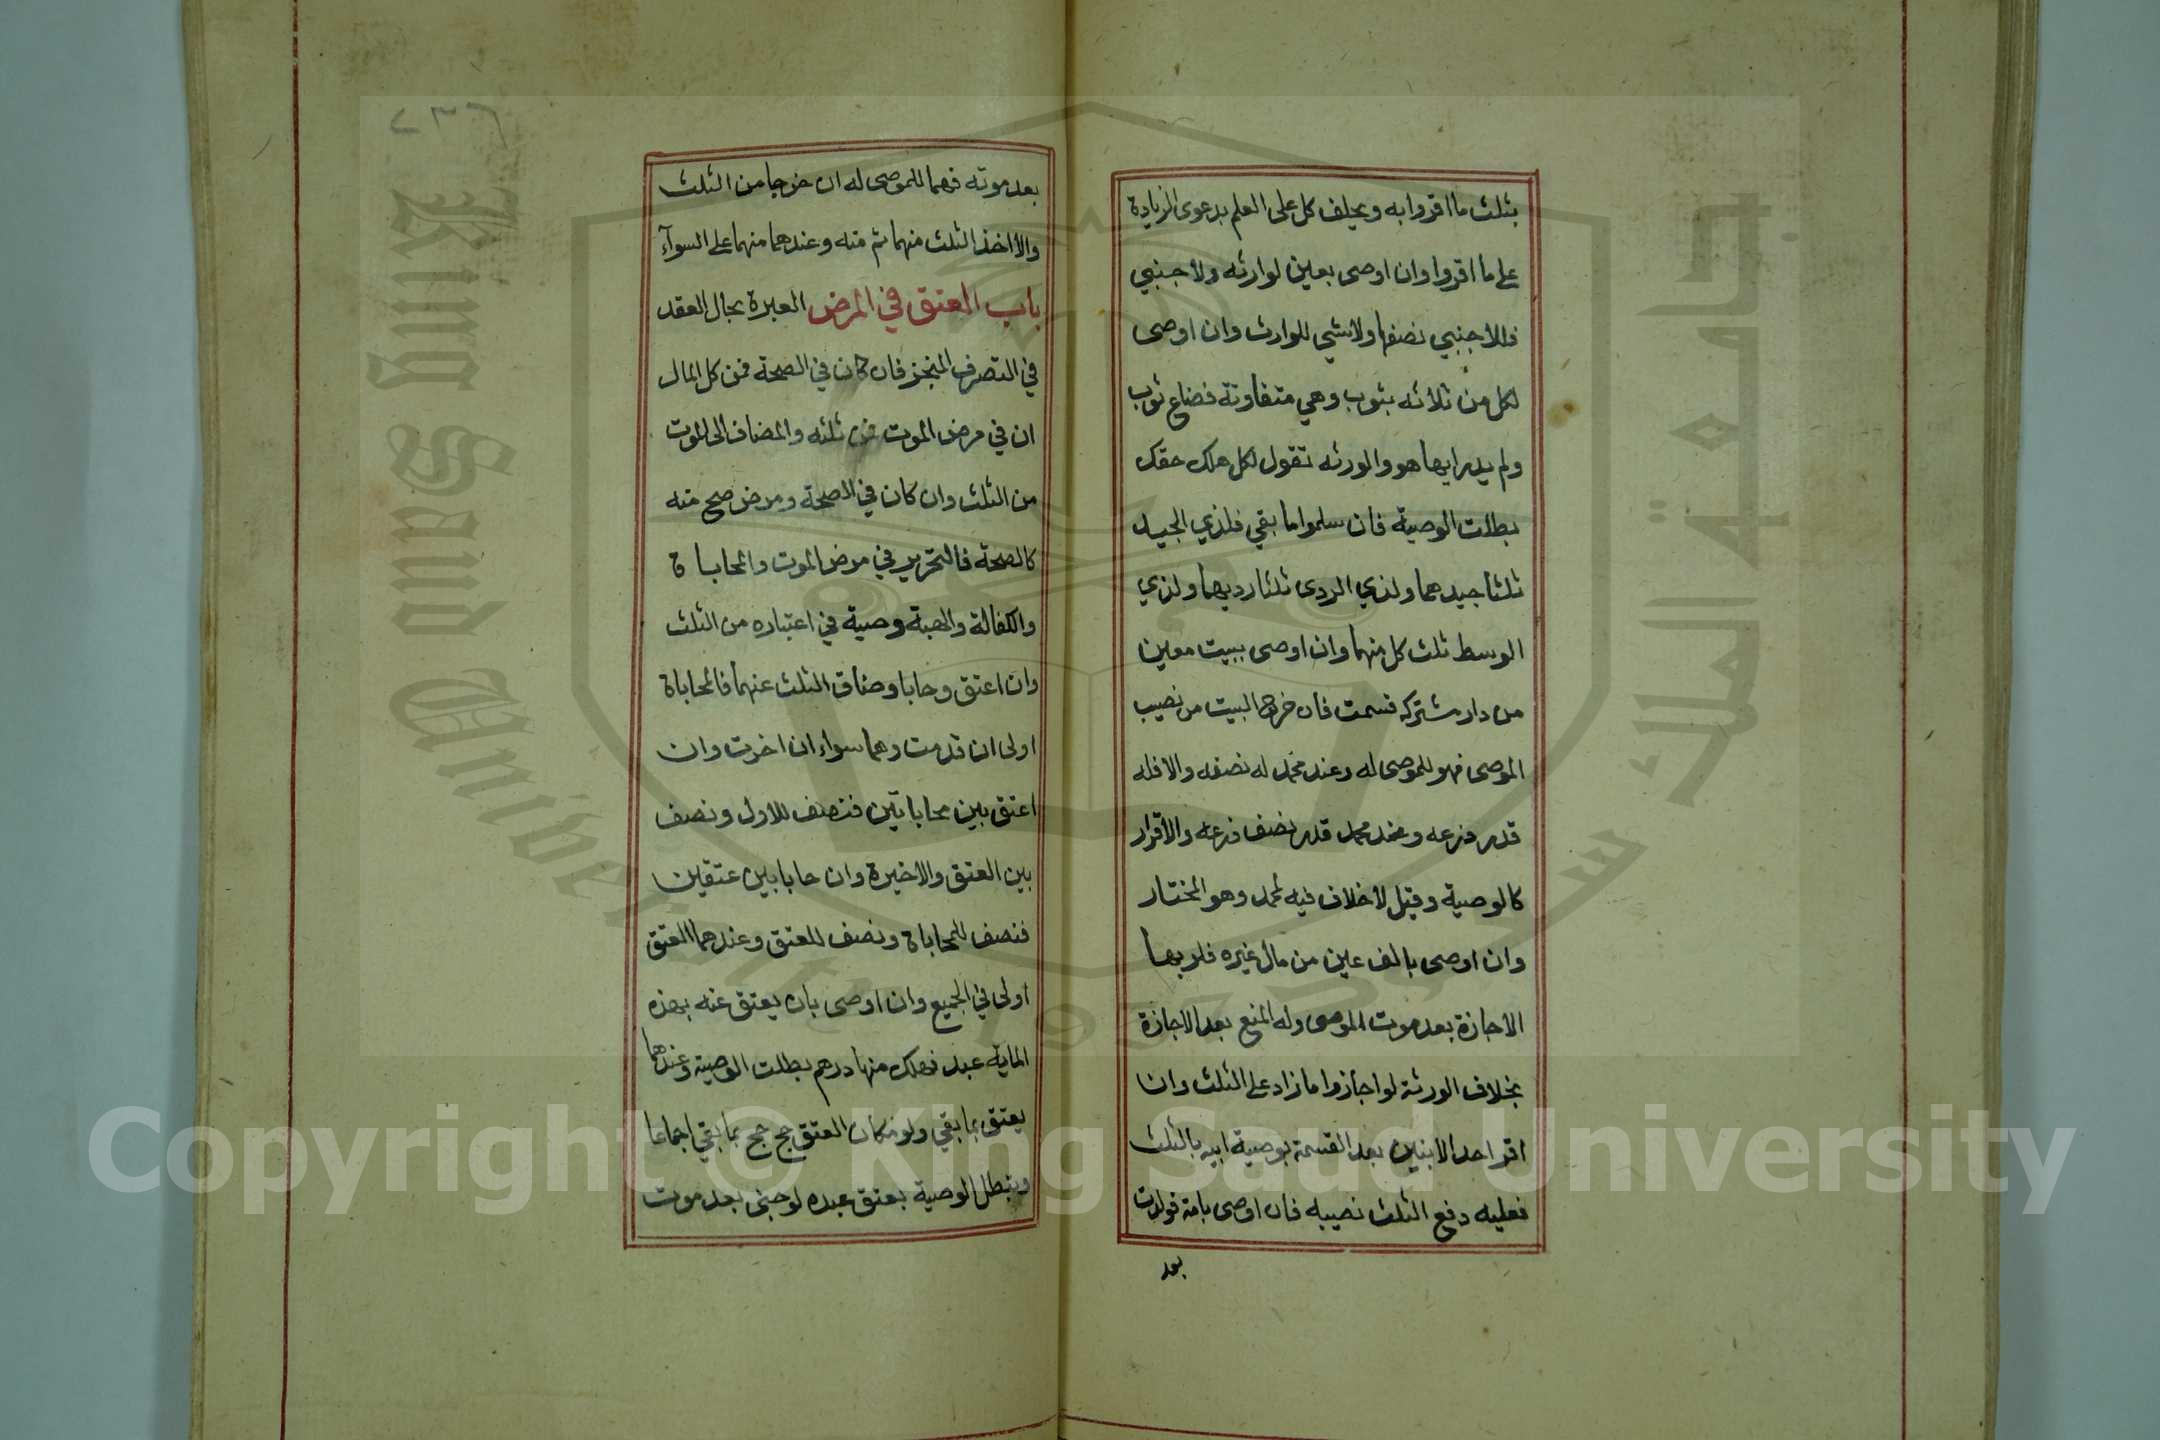 بثلث ما اقروا به ويحلف كل على العلم بدعوى الزيادة
على ما اقروا وان اوصى بعين لوارثه ولاجنبي
فللاجنبي نصفها ولا شي للوارث وان اوصى
لكل من ثلاثه بثوب وهي متفاوتة فضاع ثوب
ولم يدر ايها هو والورثه تقول لكل هلك حقك
بطلت الوصية فان سلموا ما بقي فلذي الجيد
ثلثا جيدهما ولذي الردى ثلثا رديهما ولذي
الوسط ثلث كل منهما وان اوصى ببيت معين
من دار مشتركه قسمت فان خرج البيت من نصيب
الموصى فهو للموصى له وعند محمد له نصفه والا فله
قدر ذرعه وعند محمد قدر نصف ذرعه والاقرار
كالوصية وقيل لا خلاف فيه لمحمد وهو المختار
وان اوصى بالف عين من مال غيره فلربها
الاجازة بعد موت الموصى وله المنع بعد الاجازة
بخلاف الورثة لو اجازوا ما زاد على الثلث وان
اقر احد الابنين بعد القسمة بوصية ابيه بالثلث
فعليه دفع الثلث نصيبه فان اوصى بامة فولدت
بعد
٢٣٦
بعد موته فهما للموصى له ان خرجا من الثلث
والا اخذ الثلث منها ثم منه وعندهما منهما على السوآء
باب العتق في المرض العبرة بحال العقد
في التصرف المنجز فان كان في الصحة فمن كل المال
ان في مرض الموت فمن ثلثه والمضاف الى الموت
من الثلث وان كان في الصحة ومرض صح منه
كالصحة فالتحرير في مرض الموت والمحاباة
والكفالة والهبة وصية في اعتباره من الثلث
وان اعتق وحابا وضاق الثلث عنهما فالمحاباة
اولى ان قدمت وهما سواء ان اخرت وان
اعتق بين محاباتين فنصف للاول ونصف
بين العتق والاخيرة وان حابا بين عتقين
فنصف للمحاباة ونصف للعتق وعندهما العتق
اولى في الجميع وان اوصى بان يعتق عنه بهذه
الماية عبد فهلك منها درهم بطلت الوصية وعندهما
يعتق بما بقي ولو مكان العتق حج حج بما بقي اجماعا
وتبطل الوصية بعتق عبده لو جنى بعد موت
Copyright © King Saud University
King Saud University
جامعة الملك سعود